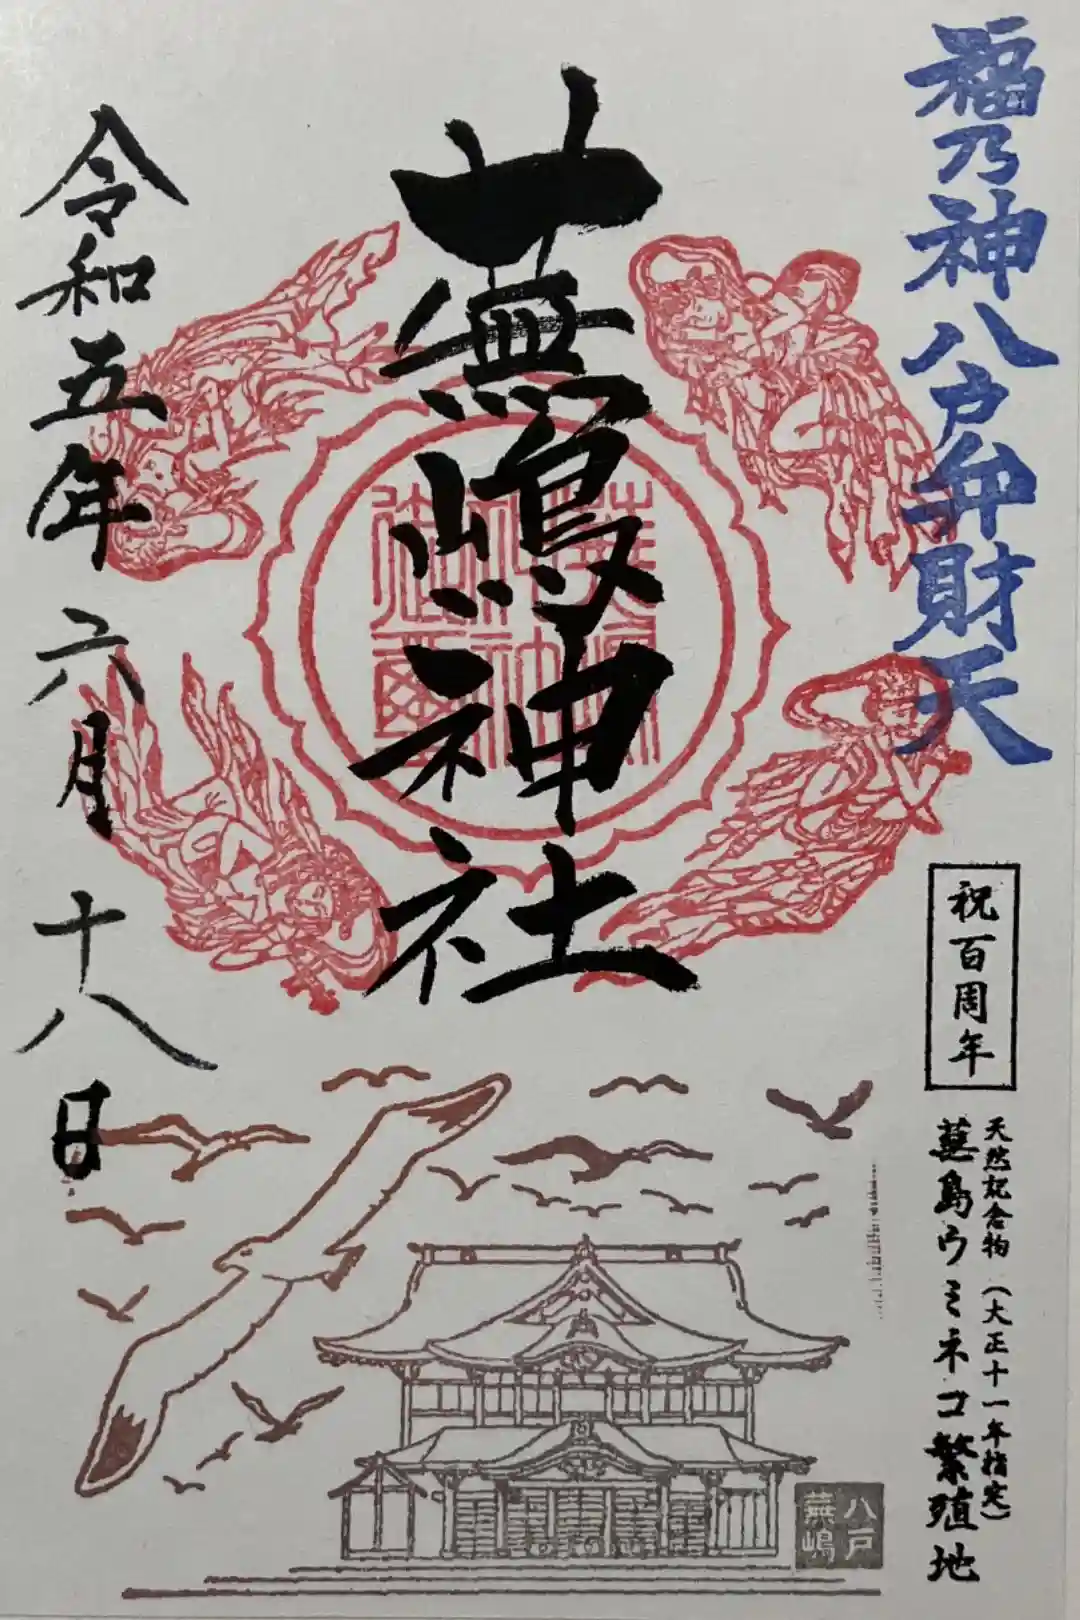 福乃神八戸弁財天
祝百周年
天然記念物（大正十一年指定）
蕪島ウミネコ繁殖地
蕪嶋神社
蕪嶋神社御璽
令和五年六月十八日
八戸
蕪嶋